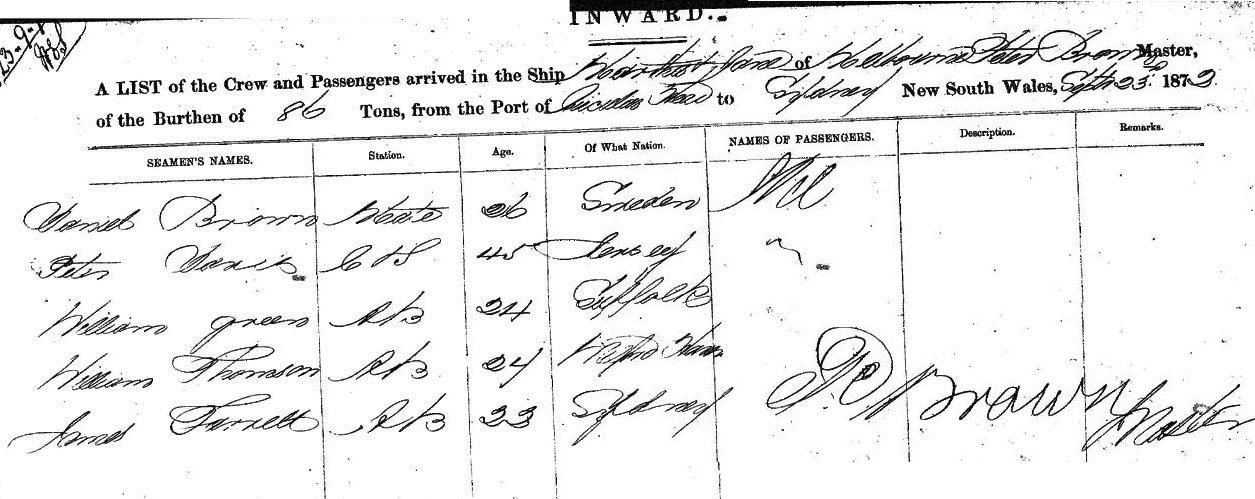 23-9-
INWARD.
A LIST of the Crew and Passengers arrived in the Ship Jane of Melbourne Peter Brown Master,
of the Burthen of 86 Tons, from the Port of to Sydney New South Wales, Sept 23 1872.
SEAMEN'S NAMES. Station. Age. Of What Nation. NAMES OF PASSENGERS. Description. Remarks.
Daniel Brown Mate 26 Sweden Nil
Peter Davis C & S 45 Jersey
William green AB 24 Suffolk
William Thomson AB 24
James AB 23 Sydney
P Brown Master